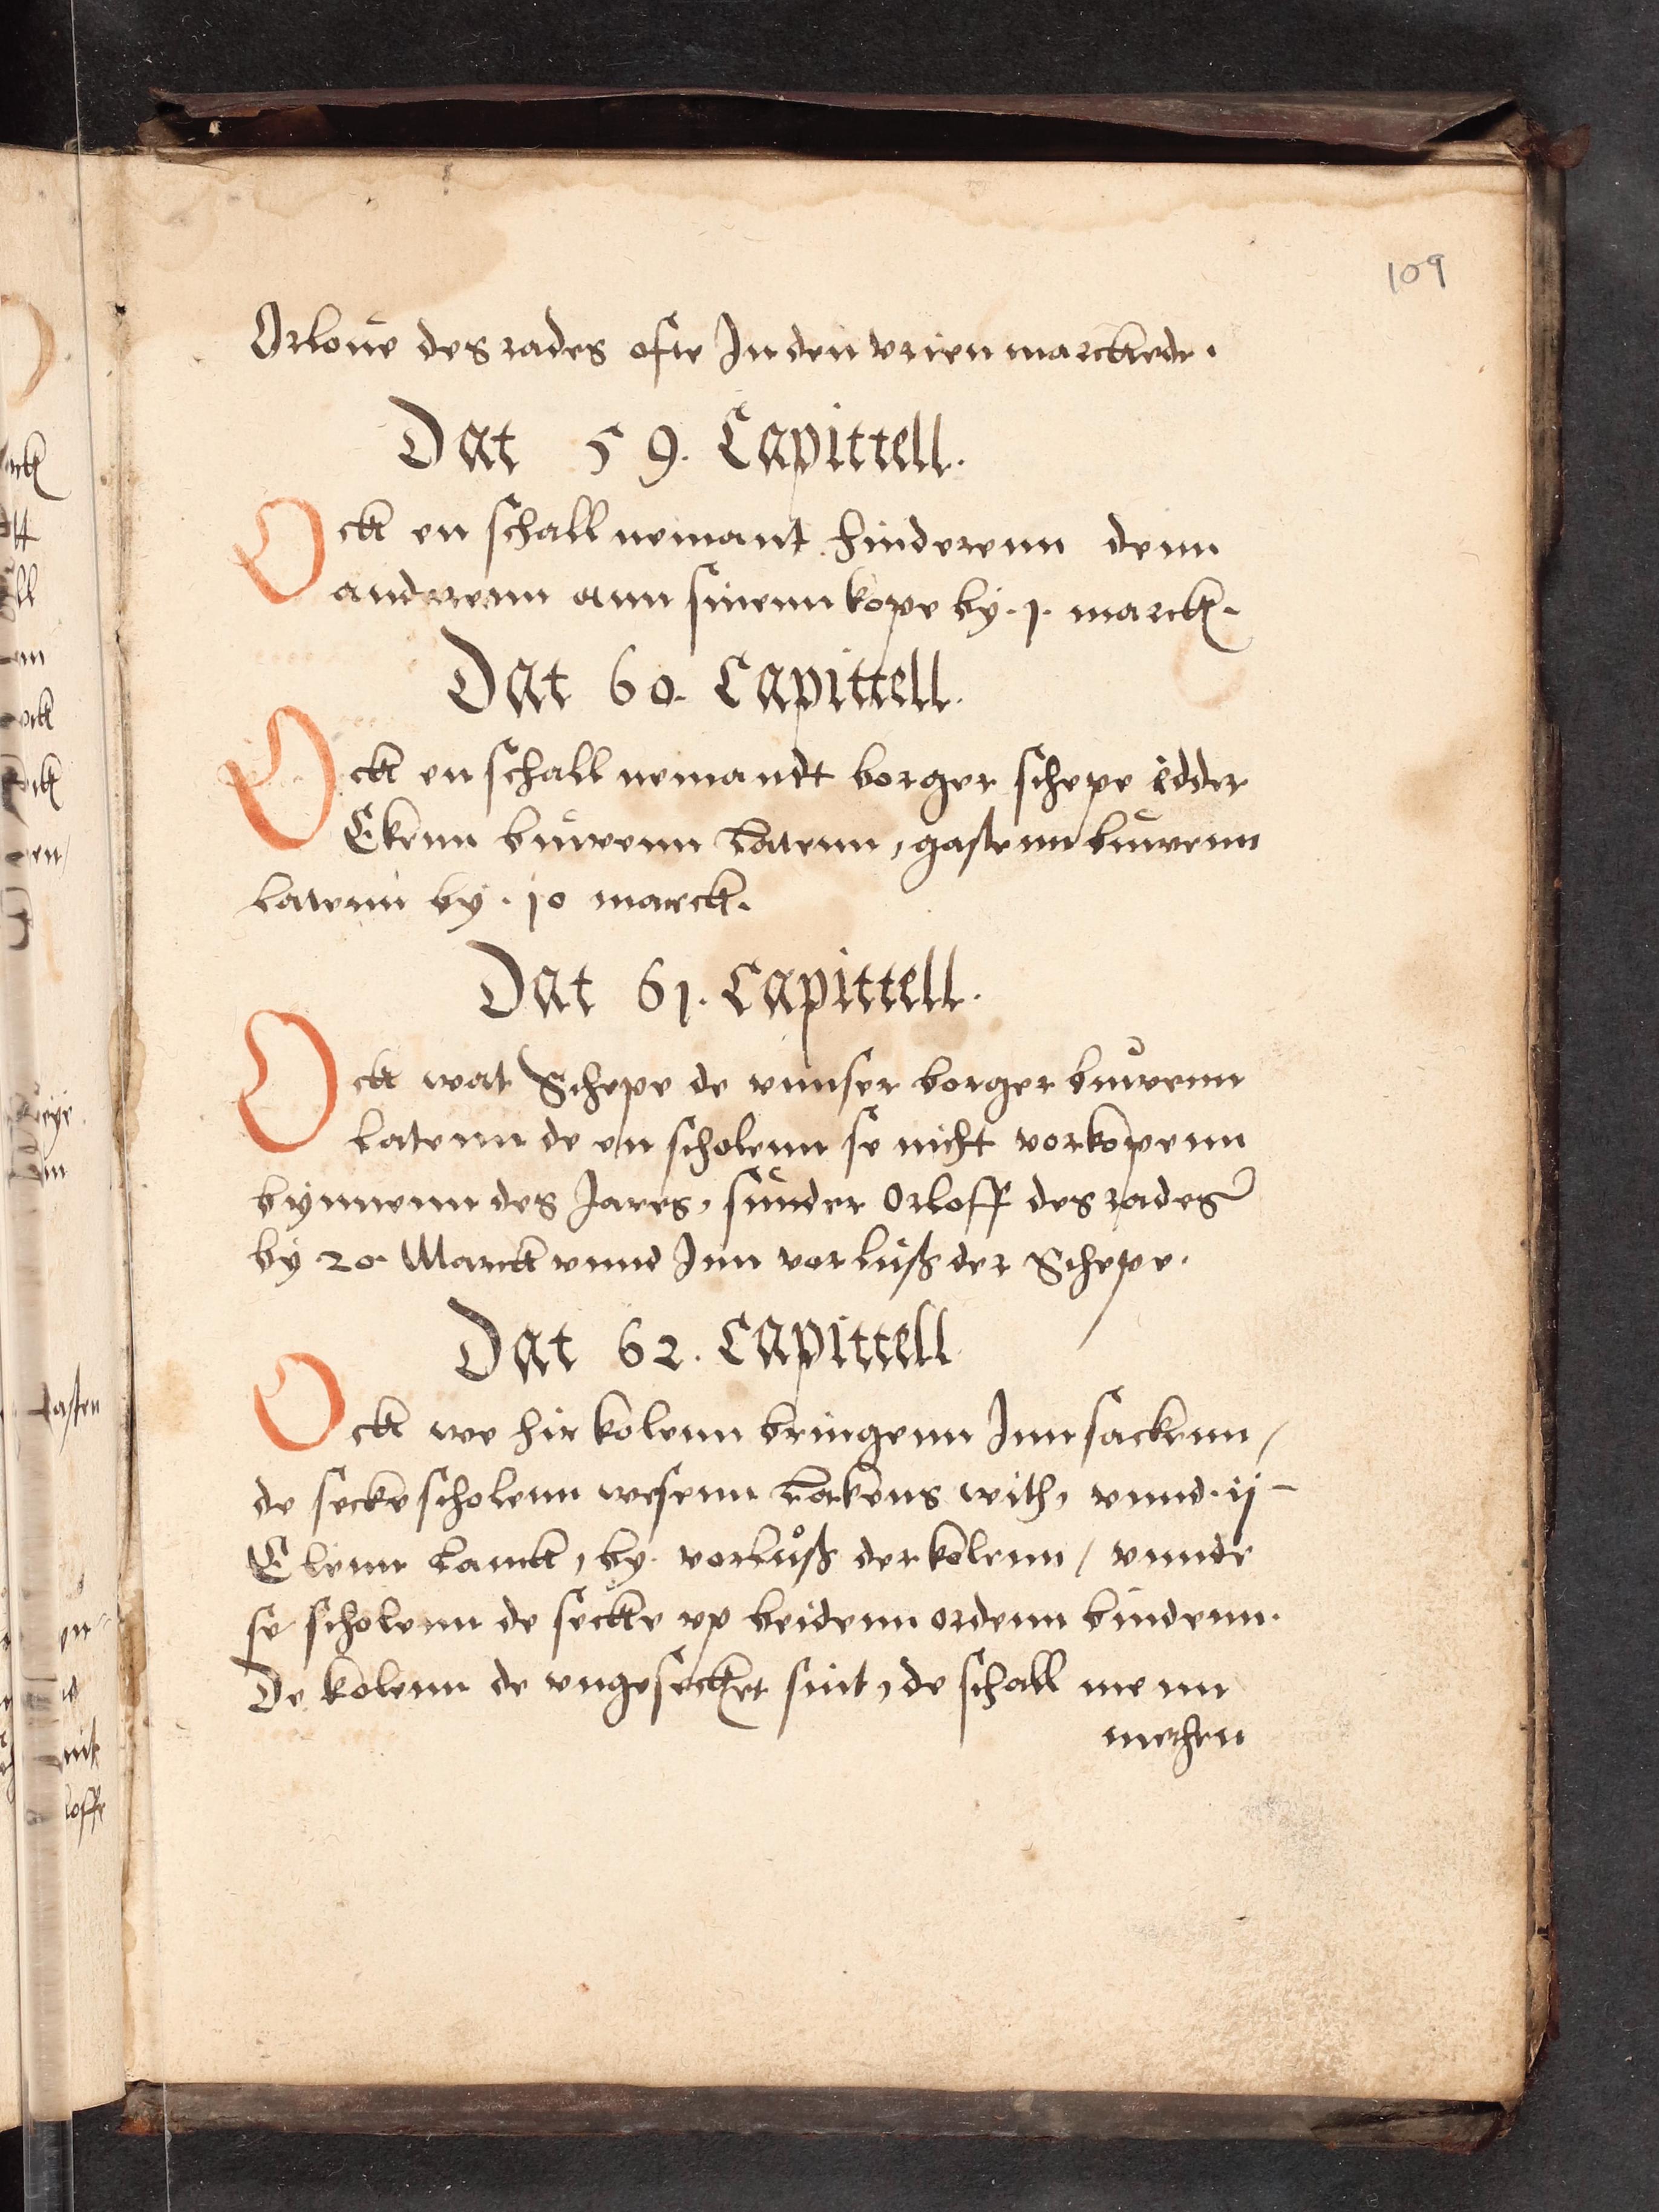 109
Orloue des rades ofte In den vrien marckede.
Dat 59. Capittell.
Ock en schall nemant hinderenn denn
anderenn ann sinenn kope by .1. marck.
Dat 60. Capittell.
Ock en schall nemandt borger schepe edder
Ekenn buwenn latenn, gastenn buwenn
latenn by .10 marck.
Dat 61. Capittell.
Ock wat Schepe de vnnser borger buwenn
latenn de en scholenn se nicht vorkopenn
bynnenn des Jares, sunder Orloff des rades
by 20. Marck vnnd Inn vorluß der Schepe.
Dat 62. Capittell
Ock we hir kolenn bringenn Inn sackenn /
de secke scholenn wesenn lakens with, vnnd .ij
Elenn lanck, by vorluß der kolenn / vnnde
se scholenn de secke vp beidenn ordenn bindenn.
De kolenn de vngesecket sint, de schall menn
methen